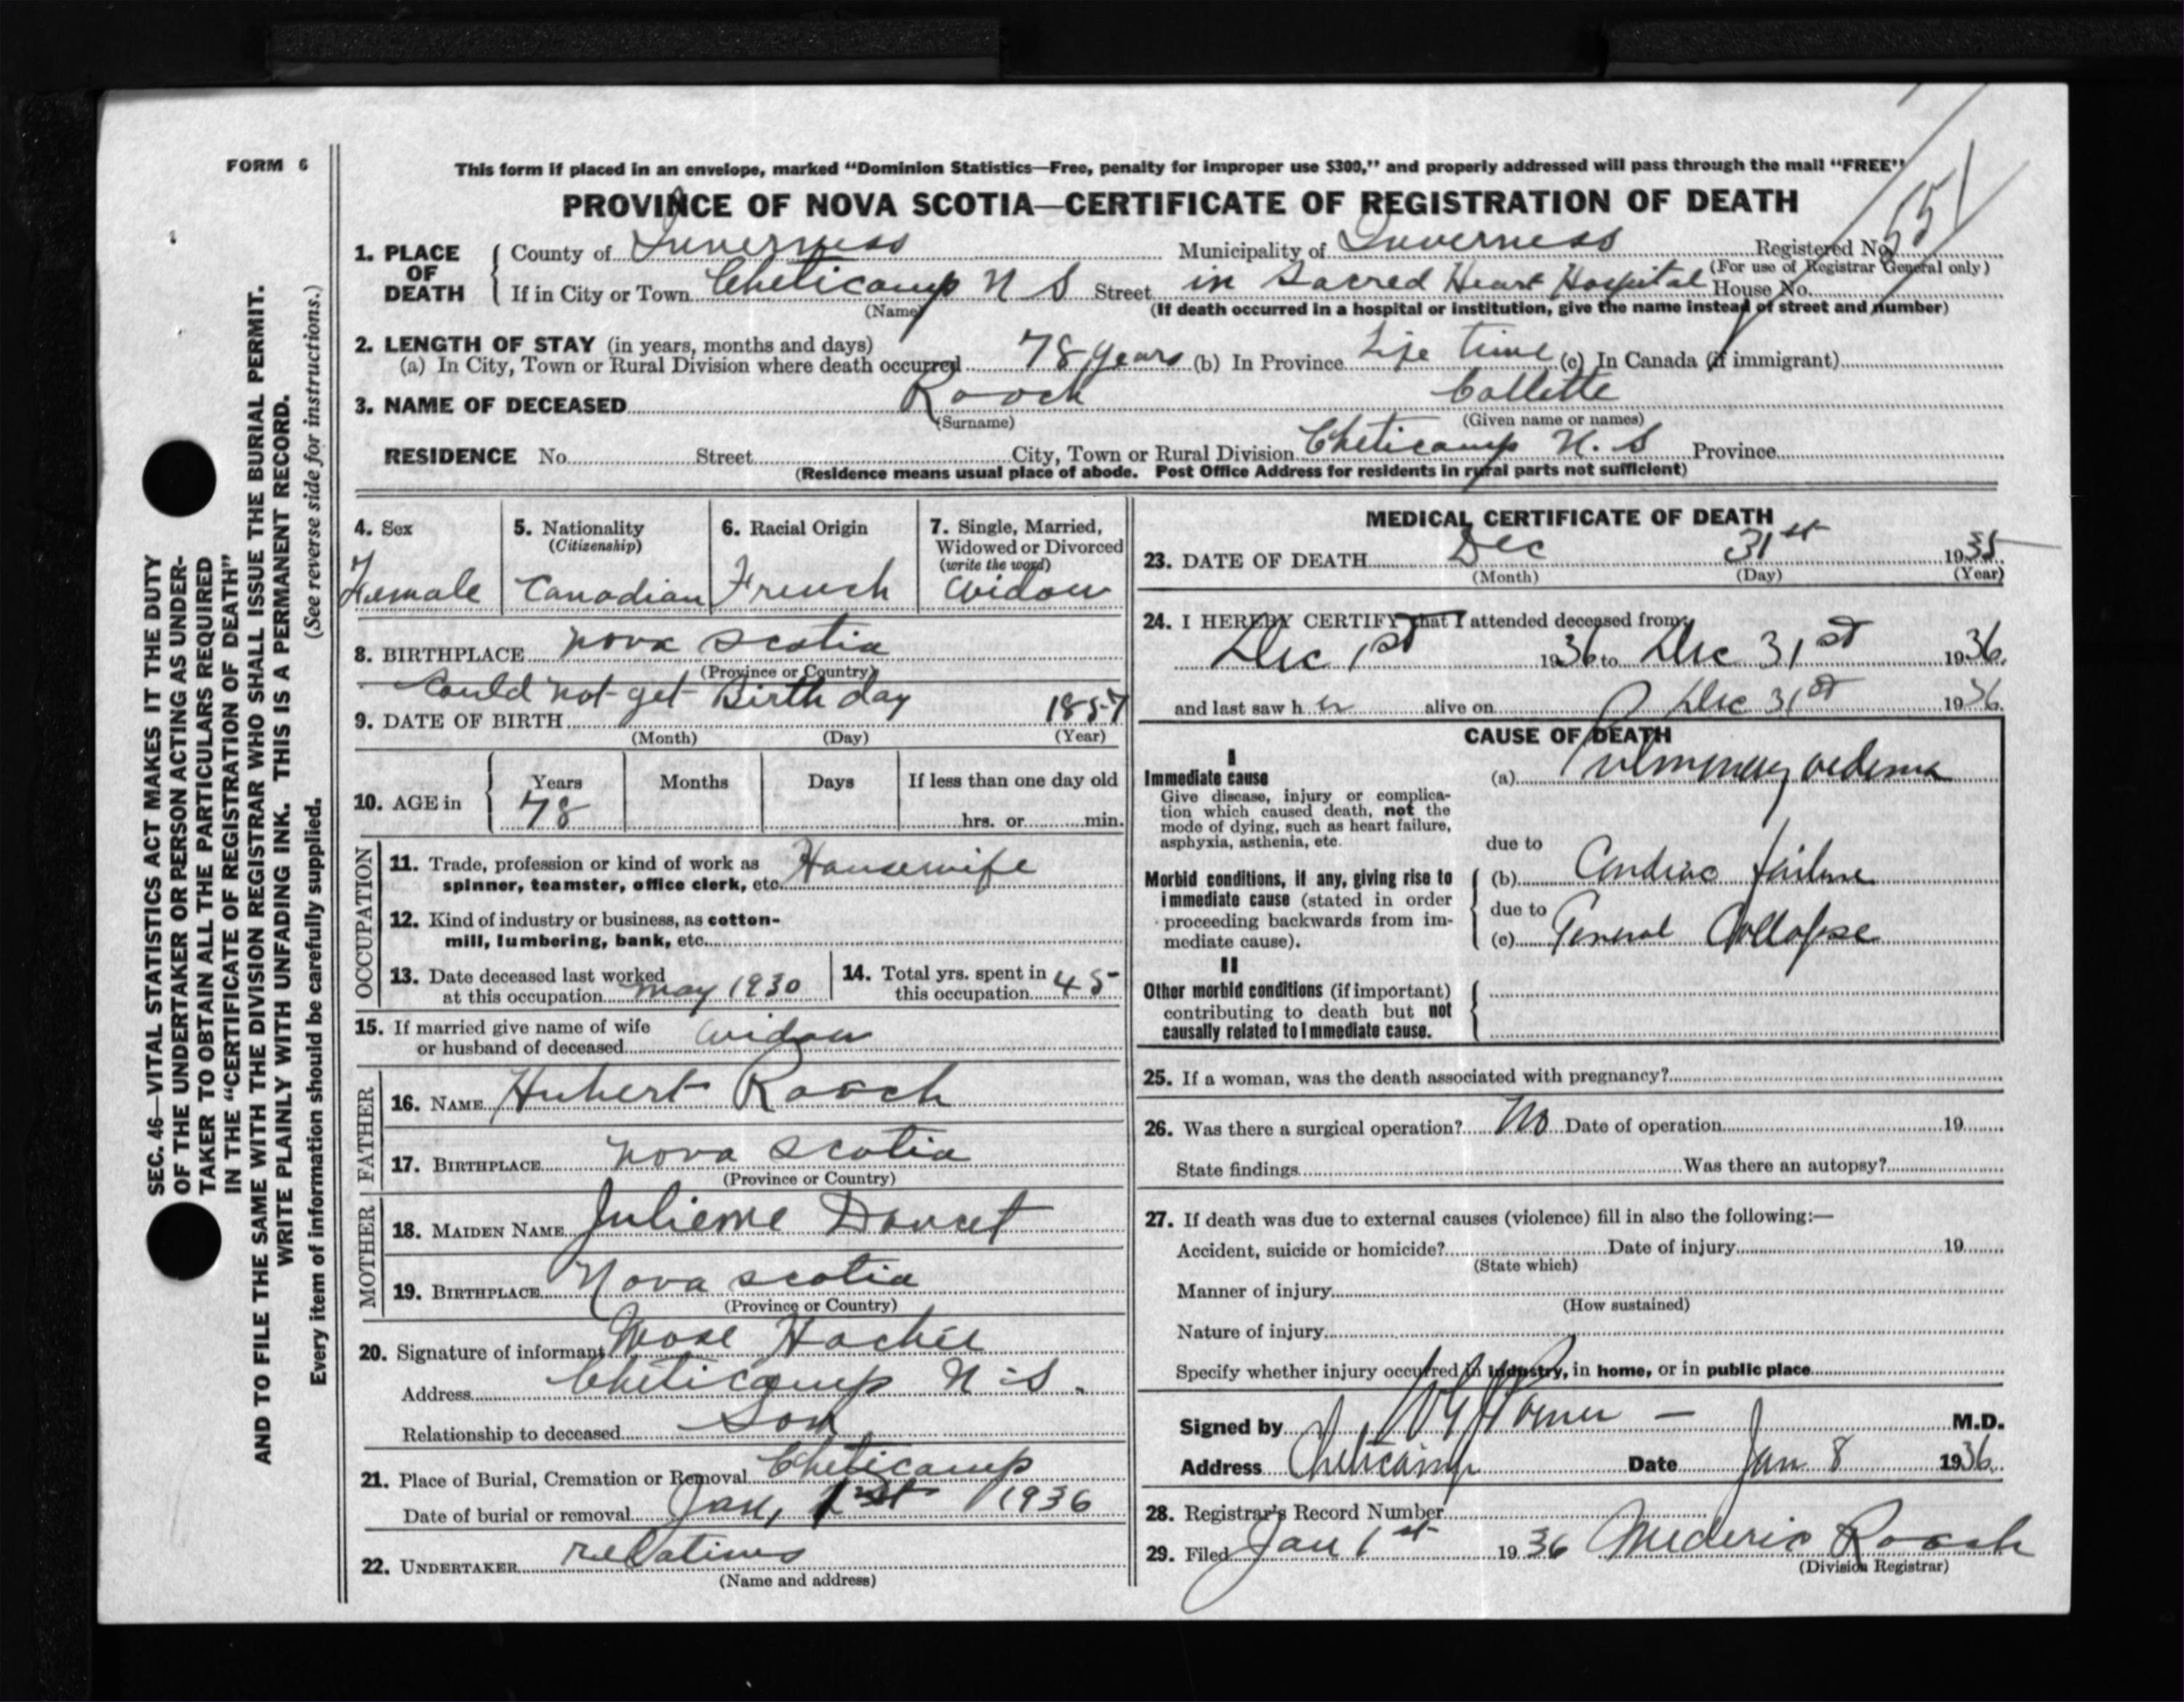 FORM 6
This form if placed in an envelope, marked “Dominion Statistics—Free, penalty for improper use $300,” and properly addressed will pass through the mail “FREE”
PROVINCE OF NOVA SCOTIA—CERTIFICATE OF REGISTRATION OF DEATH
1. PLACE OF DEATH
County of Inverness Municipality of Inverness Registered No. 551
(For use of Registrar General only)
If in City or Town Cheticamp N S Street in Sacred Heart Hospital House No.
(Name) (If death occurred in a hospital or institution, give the name instead of street and number)
2. LENGTH OF STAY (in years, months and days)
(a) In City, Town or Rural Division where death occurred 78 years (b) In Province Life time (c) In Canada (if immigrant)
3. NAME OF DECEASED Roach Collette
(Surname) (Given name or names)
RESIDENCE No. Street City, Town or Rural Division Cheticamp N. S Province
(Residence means usual place of abode. Post Office Address for residents in rural parts not sufficient)
4. Sex
Female
5. Nationality
(Citizenship)
Canadian
6. Racial Origin
French
7. Single, Married,
Widowed or Divorced
(write the word)
Widow
8. BIRTHPLACE Nova Scotia
(Province or Country)
Could not get Birth day
9. DATE OF BIRTH 1857
(Month) (Day) (Year)
10. AGE in
Years Months Days If less than one day old
78 hrs. or min.
OCCUPATION
11. Trade, profession or kind of work as Housewife
spinner, teamster, office clerk, etc.
12. Kind of industry or business, as cotton-
mill, lumbering, bank, etc.
13. Date deceased last worked
at this occupation May 1930
14. Total yrs. spent in
this occupation 45
15. If married give name of wife
or husband of deceased Widow
FATHER
16. NAME Hubert Roach
17. BIRTHPLACE Nova Scotia
(Province or Country)
MOTHER
18. MAIDEN NAME Julienne Doucet
19. BIRTHPLACE Nova Scotia
(Province or Country)
20. Signature of informant Mose Haché
Address Cheticamp N-S.
Relationship to deceased Son
21. Place of Burial, Cremation or Removal Cheticamp
Date of burial or removal Jan, 1st 1936
22. UNDERTAKER relatives
(Name and address)
MEDICAL CERTIFICATE OF DEATH
23. DATE OF DEATH Dec 31st 1935
(Month) (Day) (Year)
24. I HEREBY CERTIFY that I attended deceased from:
Dec 1st 1936 to Dec 31st 1936.
and last saw her alive on Dec 31st 1936
CAUSE OF DEATH
I
Immediate cause
Give disease, injury or complica-
tion which caused death, not the
mode of dying, such as heart failure,
asphyxia, asthenia, etc.
(a) Pulmonary oedema
due to
Morbid conditions, if any, giving rise to
immediate cause (stated in order
proceeding backwards from im-
mediate cause).
(b) Cardiac failure
due to
(c) General Collapse
II
Other morbid conditions (if important)
contributing to death but not
causally related to immediate cause.
25. If a woman, was the death associated with pregnancy?
26. Was there a surgical operation? No Date of operation 19
State findings Was there an autopsy?
27. If death was due to external causes (violence) fill in also the following:—
Accident, suicide or homicide? Date of injury 19
(State which)
Manner of injury
(How sustained)
Nature of injury
Specify whether injury occurred in industry, in home, or in public place
Signed by M.D.
Address Cheticamp Date Jan 8 1936.
28. Registrar's Record Number
29. Filed Jan 1st 1936 Mederic Roach
(Division Registrar)
SEC. 46—VITAL STATISTICS ACT MAKES IT THE DUTY
OF THE UNDERTAKER OR PERSON ACTING AS UNDER-
TAKER TO OBTAIN ALL THE PARTICULARS REQUIRED
IN THE “CERTIFICATE OF REGISTRATION OF DEATH”
AND TO FILE THE SAME WITH THE DIVISION REGISTRAR WHO SHALL ISSUE THE BURIAL PERMIT.
WRITE PLAINLY WITH UNFADING INK. THIS IS A PERMANENT RECORD.
Every item of information should be carefully supplied. (See reverse side for instructions.)